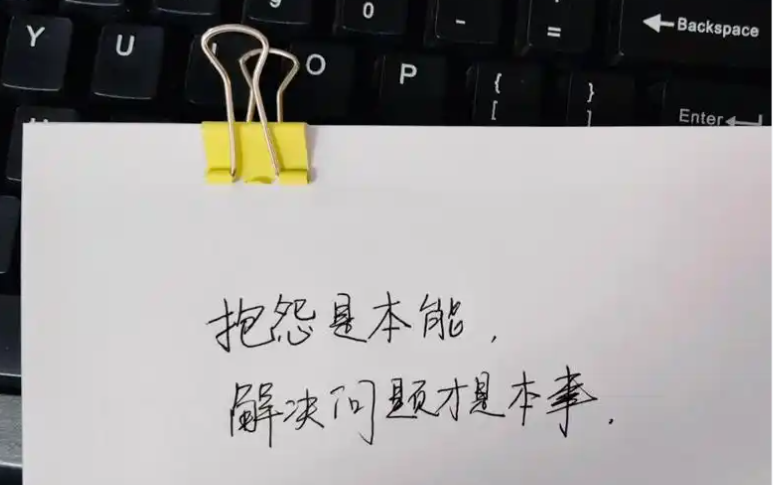 9 0 - + =
Y U I O P { [ } ] Backspace
Enter
抱怨是本能.
解决问题才是本事.